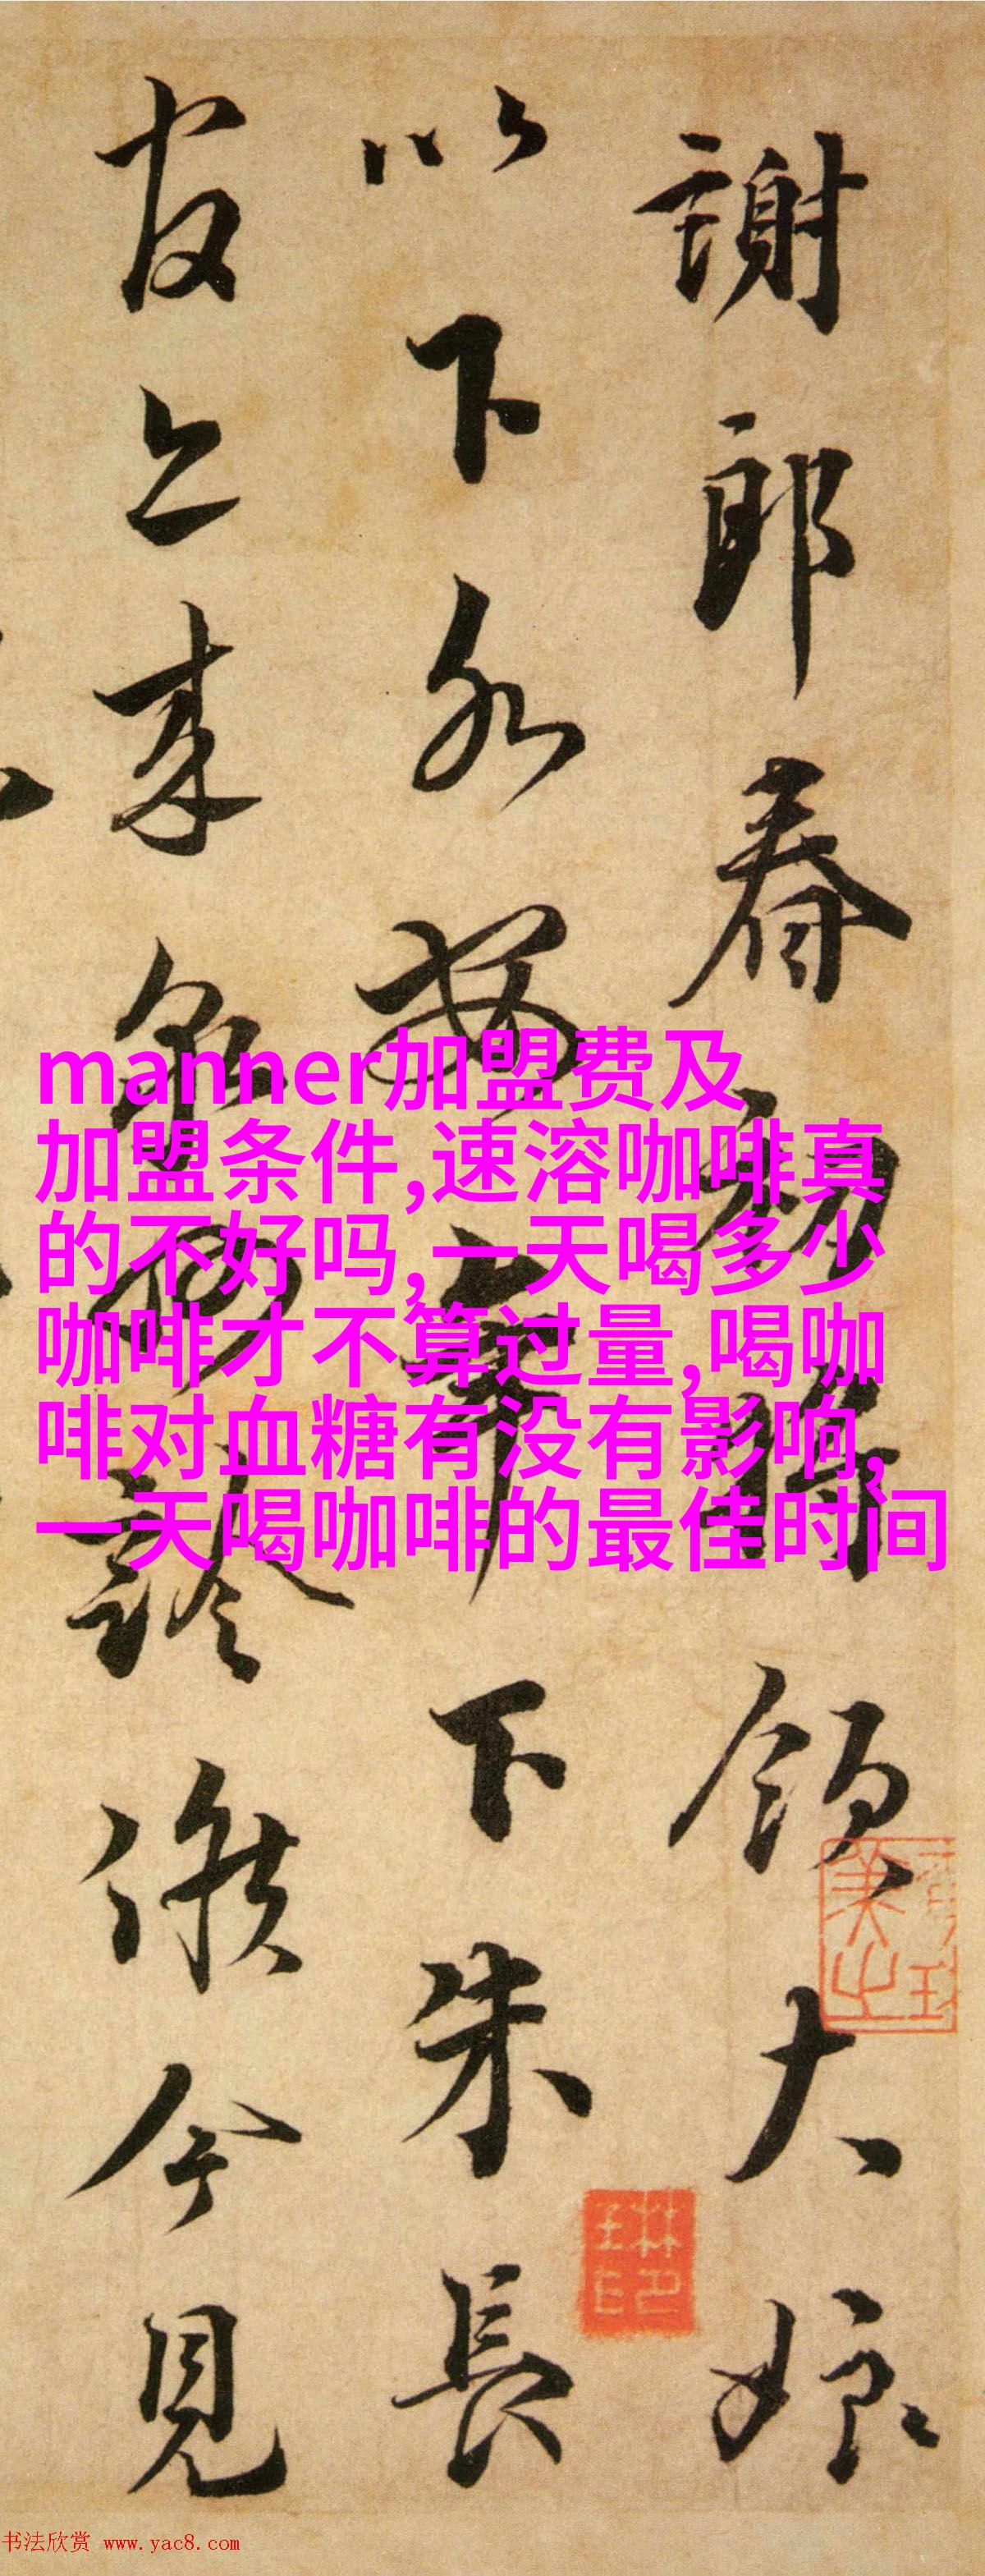 謝郎春初将領大娘
以下永安幸下朱長
官上来参
候今見
manner加盟费及
加盟条件,速溶咖啡真
的不好吗,一天喝多少
咖啡才不算过量,喝咖
啡对血糖有没有影响,
一天喝咖啡的最佳时间
书法欣赏 www.yac8.com